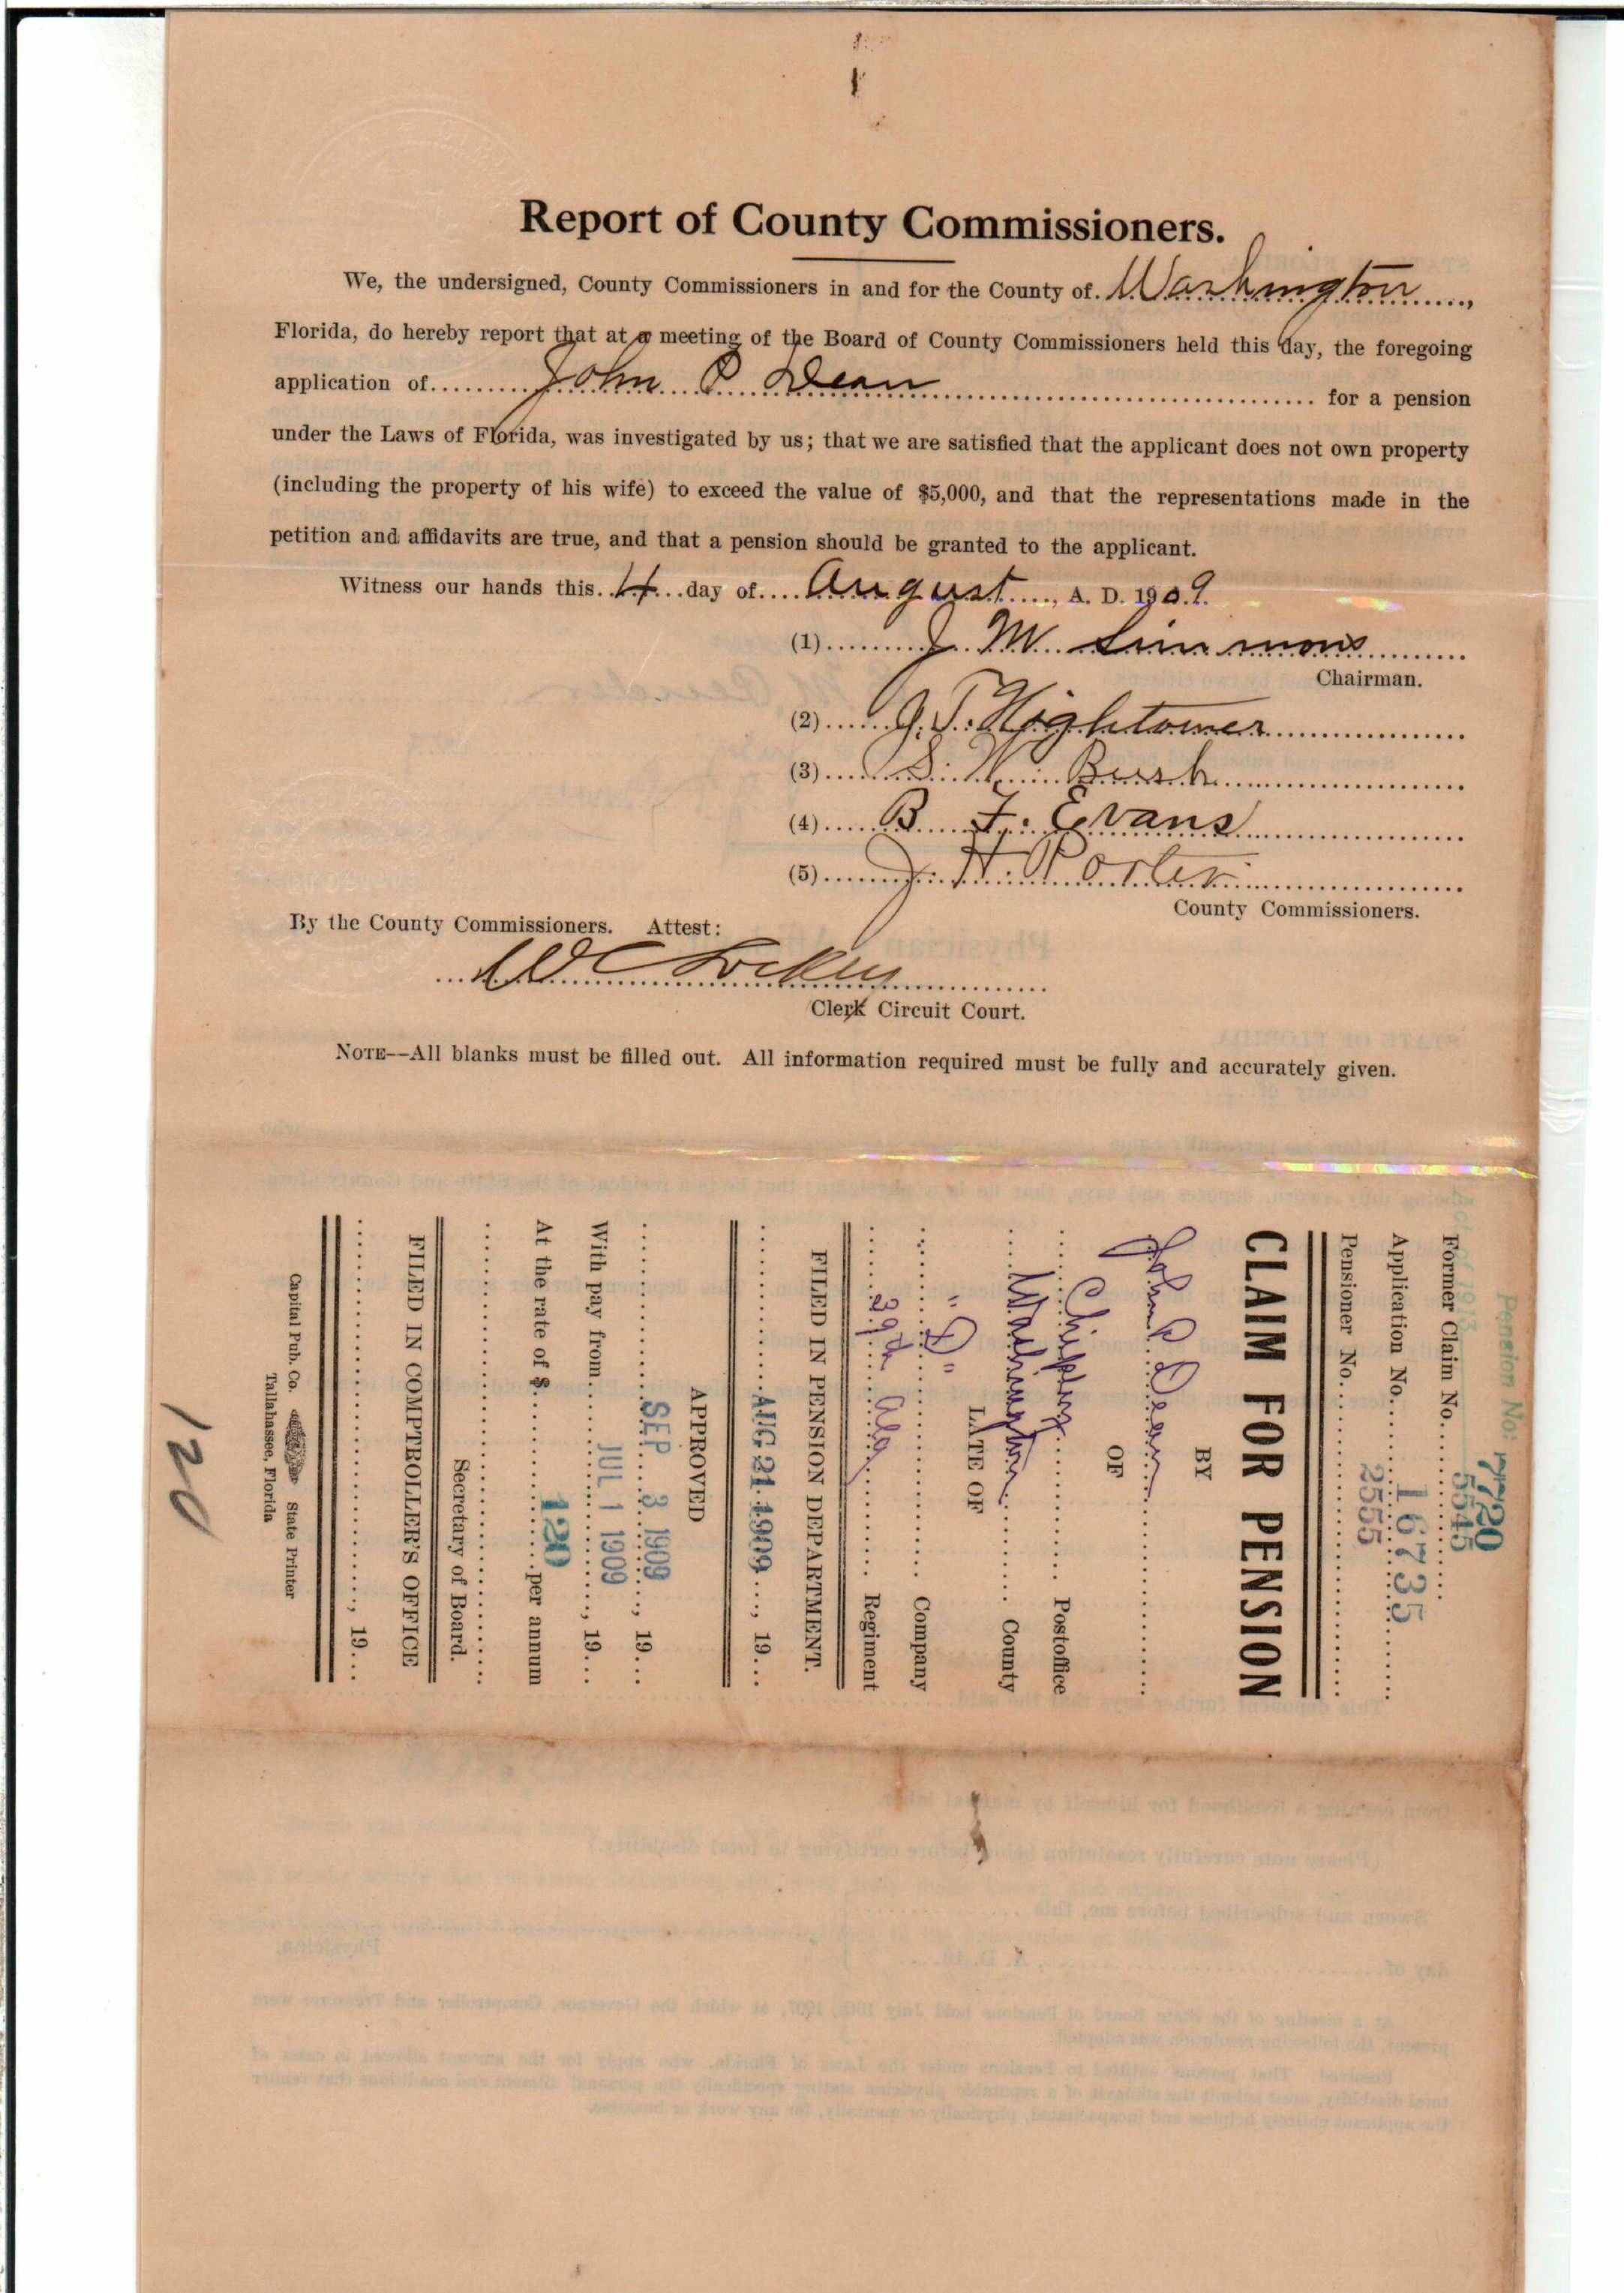 Report of County Commissioners.
We, the undersigned, County Commissioners in and for the County of Washington,
Florida, do hereby report that at a meeting of the Board of County Commissioners held this day, the foregoing
application of John P Dean for a pension
under the Laws of Florida, was investigated by us; that we are satisfied that the applicant does not own property
(including the property of his wife) to exceed the value of $5,000, and that the representations made in the
petition and affidavits are true, and that a pension should be granted to the applicant.
Witness our hands this 4 day of August, A. D. 1909.
(1) J. M. Simmons
Chairman.
(2) J. T. Hightower
(3) S. W. Bush
(4) B F. Evans
(5) J. H. Porter
County Commissioners.
By the County Commissioners. Attest:
W C Lockey
Clerk Circuit Court.
NOTE--All blanks must be filled out. All information required must be fully and accurately given.
Pension No: 7720
Act of 1913
Former Claim No. 5545
Application No. 16735
Pensioner No. 2555
CLAIM FOR PENSION
BY
John P Dean
OF
Chipley Postoffice
Washington County
LATE OF
"D" Company
39th Ala Regiment
FILED IN PENSION DEPARTMENT.
AUG 21 1909, 19
APPROVED
SEP 3 1909, 19
With pay from JUL 1 1909, 19
At the rate of $ 120 per annum
Secretary of Board.
FILED IN COMPTROLLER'S OFFICE
, 19
Capital Pub. Co. State Printer
Tallahassee, Florida
120